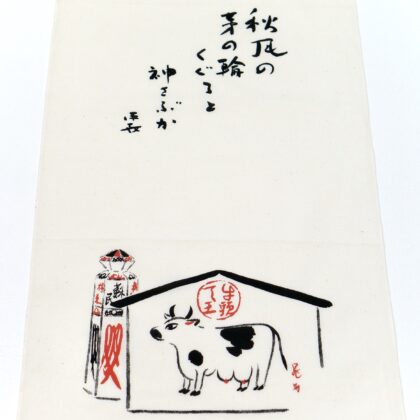 秋風の
茅の輪
くぐると
神さぶか
牛頭
天王
蘇民